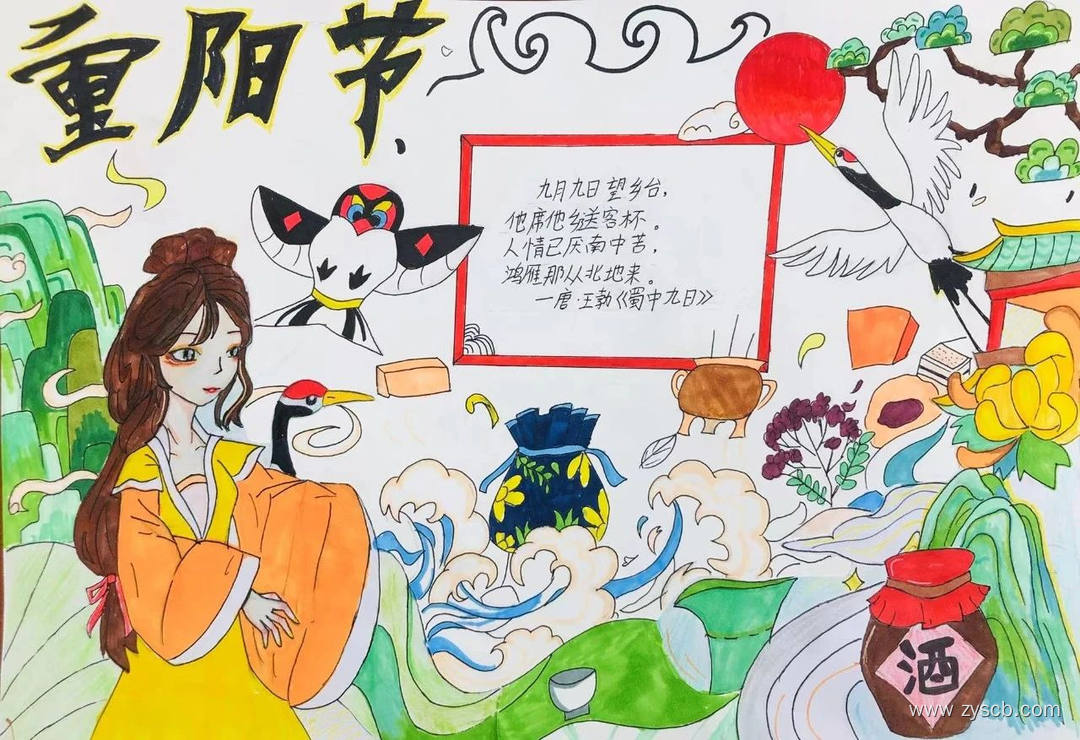 重阳节
九月九日望乡台，
他席他乡送客杯。
人情已厌南中苦，
鸿雁那从北地来。
—唐·王勃《蜀中九日》
酒
www.zyscb.com